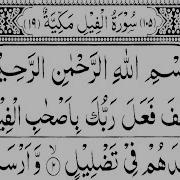 (١٠٥) سُوْرَةُ الْفِيْلِ مَكِّيَّةٌ (١٩)
سْمِ اللهِ الرَّحْمٰنِ الرَّحِيْ
فَ فَعَلَ رَبُّكَ بِاَصْحٰبِ الْفِيْ
دَهُمْ فِيْ تَضْلِيْلٍ ۙ ٢ وَّاَرْسَ